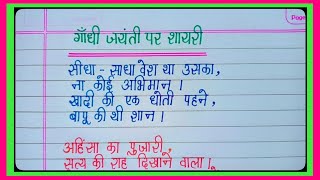 Page:
गाँधी जयंती पर शायरी
सीधा - साधा वेश था उसका,
ना कोई अभिमान।
खादी की एक धोती पहने,
बापू की थी शान।
अहिंसा का पुजारी,
सत्य की राह दिखाने वाला।